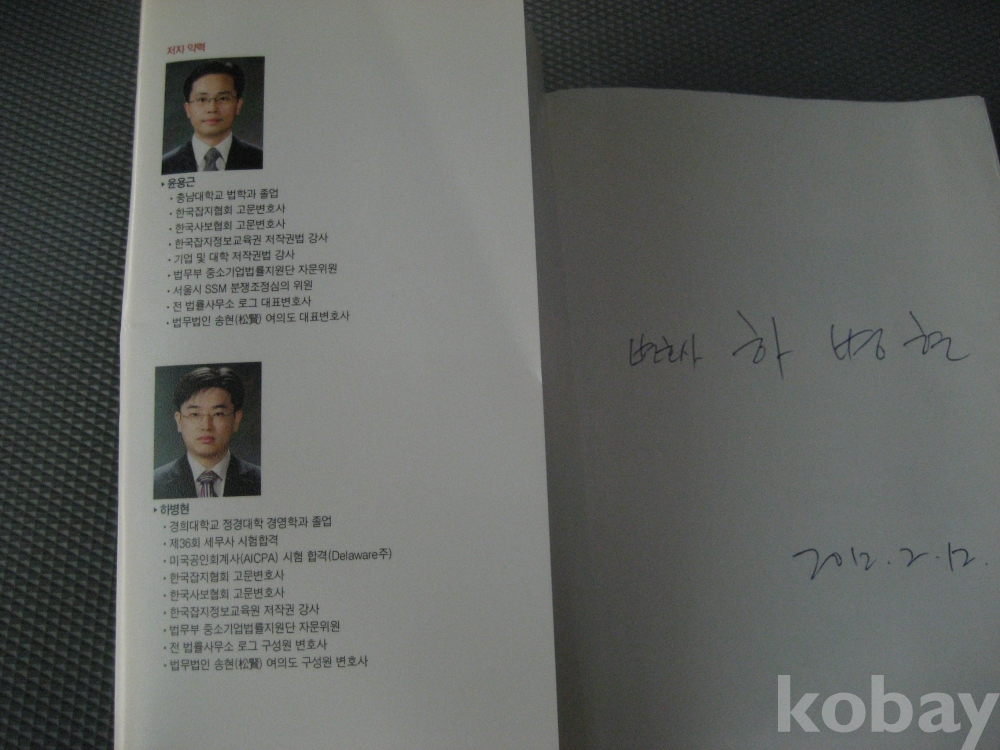 저자 약력
▸윤용근
• 충남대학교 법학과 졸업
• 한국잡지협회 고문변호사
• 한국사보협회 고문변호사
• 한국잡지정보교육권 저작권법 강사
• 기업 및 대학 저작권법 강사
• 법무부 중소기업법률지원단 자문위원
• 서울시 SSM 분쟁조정심의 위원
• 전 법률사무소 로그 대표변호사
• 법무법인 송현(松賢) 여의도 대표변호사
▸하병현
• 경희대학교 정경대학 경영학과 졸업
• 제36회 세무사 시험합격
• 미국공인회계사(AICPA) 시험 합격(Delaware주)
• 한국잡지협회 고문변호사
• 한국사보협회 고문변호사
• 한국잡지정보교육원 저작권 강사
• 법무부 중소기업법률지원단 자문위원
• 전 법률사무소 로그 구성원 변호사
• 법무법인 송현(松賢) 여의도 구성원 변호사
변호사 하 병 현
2012. 2. 12.
kobay